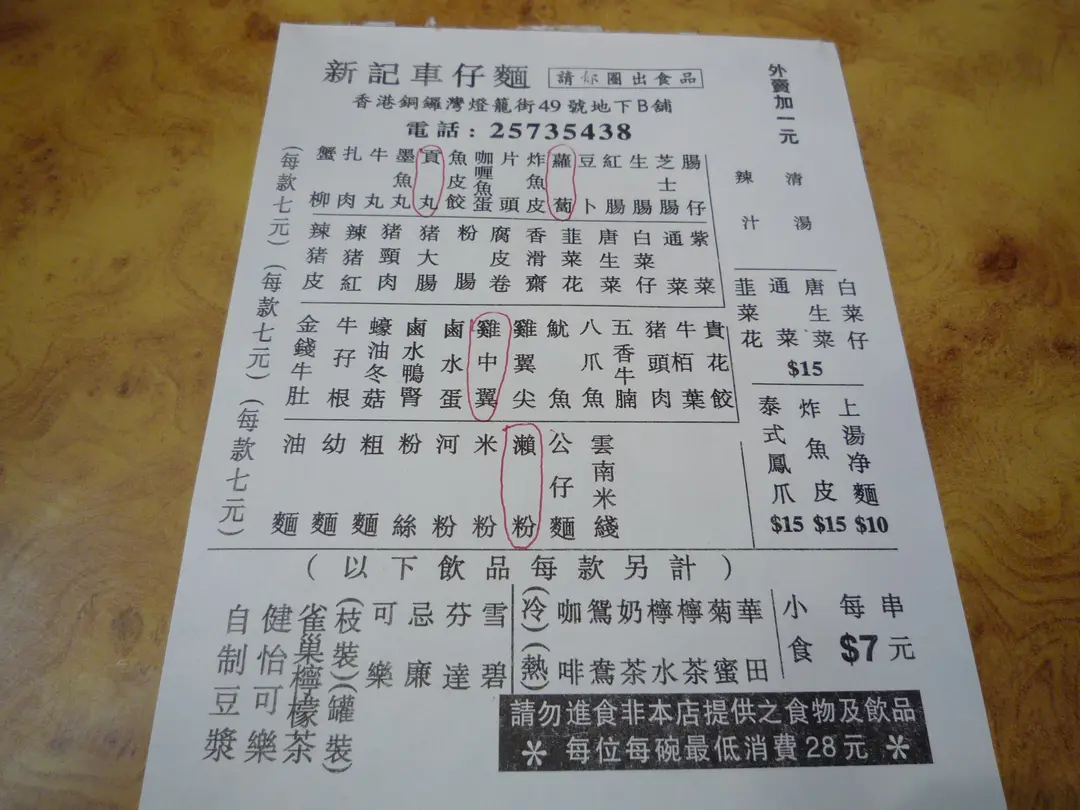 新記車仔麵
請你圈出食品
香港銅鑼灣燈籠街49號地下B舖
電話：25735438
外賣加一元
清湯
辣汁
腸仔
芝士腸
生腸
紅腸
豆卜
蘿蔔
炸魚皮
片頭
咖喱魚蛋
魚皮餃
貢丸
墨魚丸
牛丸
扎肉
蟹柳
(每款七元)
紫菜
通菜
白菜仔
唐生菜
韭菜花
香滑齋
腐皮卷
粉腸
猪大腸
猪頸肉
辣猪紅
辣猪皮
(每款七元)
貴花餃
牛栢葉
猪頭肉
五香牛腩
八爪魚
魷魚
雞翼尖
雞中翼
鹵水蛋
鹵水鴨腎
蠔油冬菇
牛孖根
金錢牛肚
(每款七元)
雲南米綫
公仔麵
瀨粉
米粉
河粉
粉絲
粗麵
幼麵
油麵
白菜仔
唐生菜
通菜
韭菜花
$15
上湯净麵
$10
炸魚皮
$15
泰式鳳爪
$15
(以下飲品每款另計)
華田
菊蜜
檸茶
檸水
奶茶
鴛鴦
咖啡
(冷)(熱)
雪碧
芬達
忌廉
可樂
(枝裝)(罐裝)
雀巢檸檬茶
健怡可樂
自制豆漿
小食
每串
$7元
請勿進食非本店提供之食物及飲品
* 每位每碗最低消費28元 *